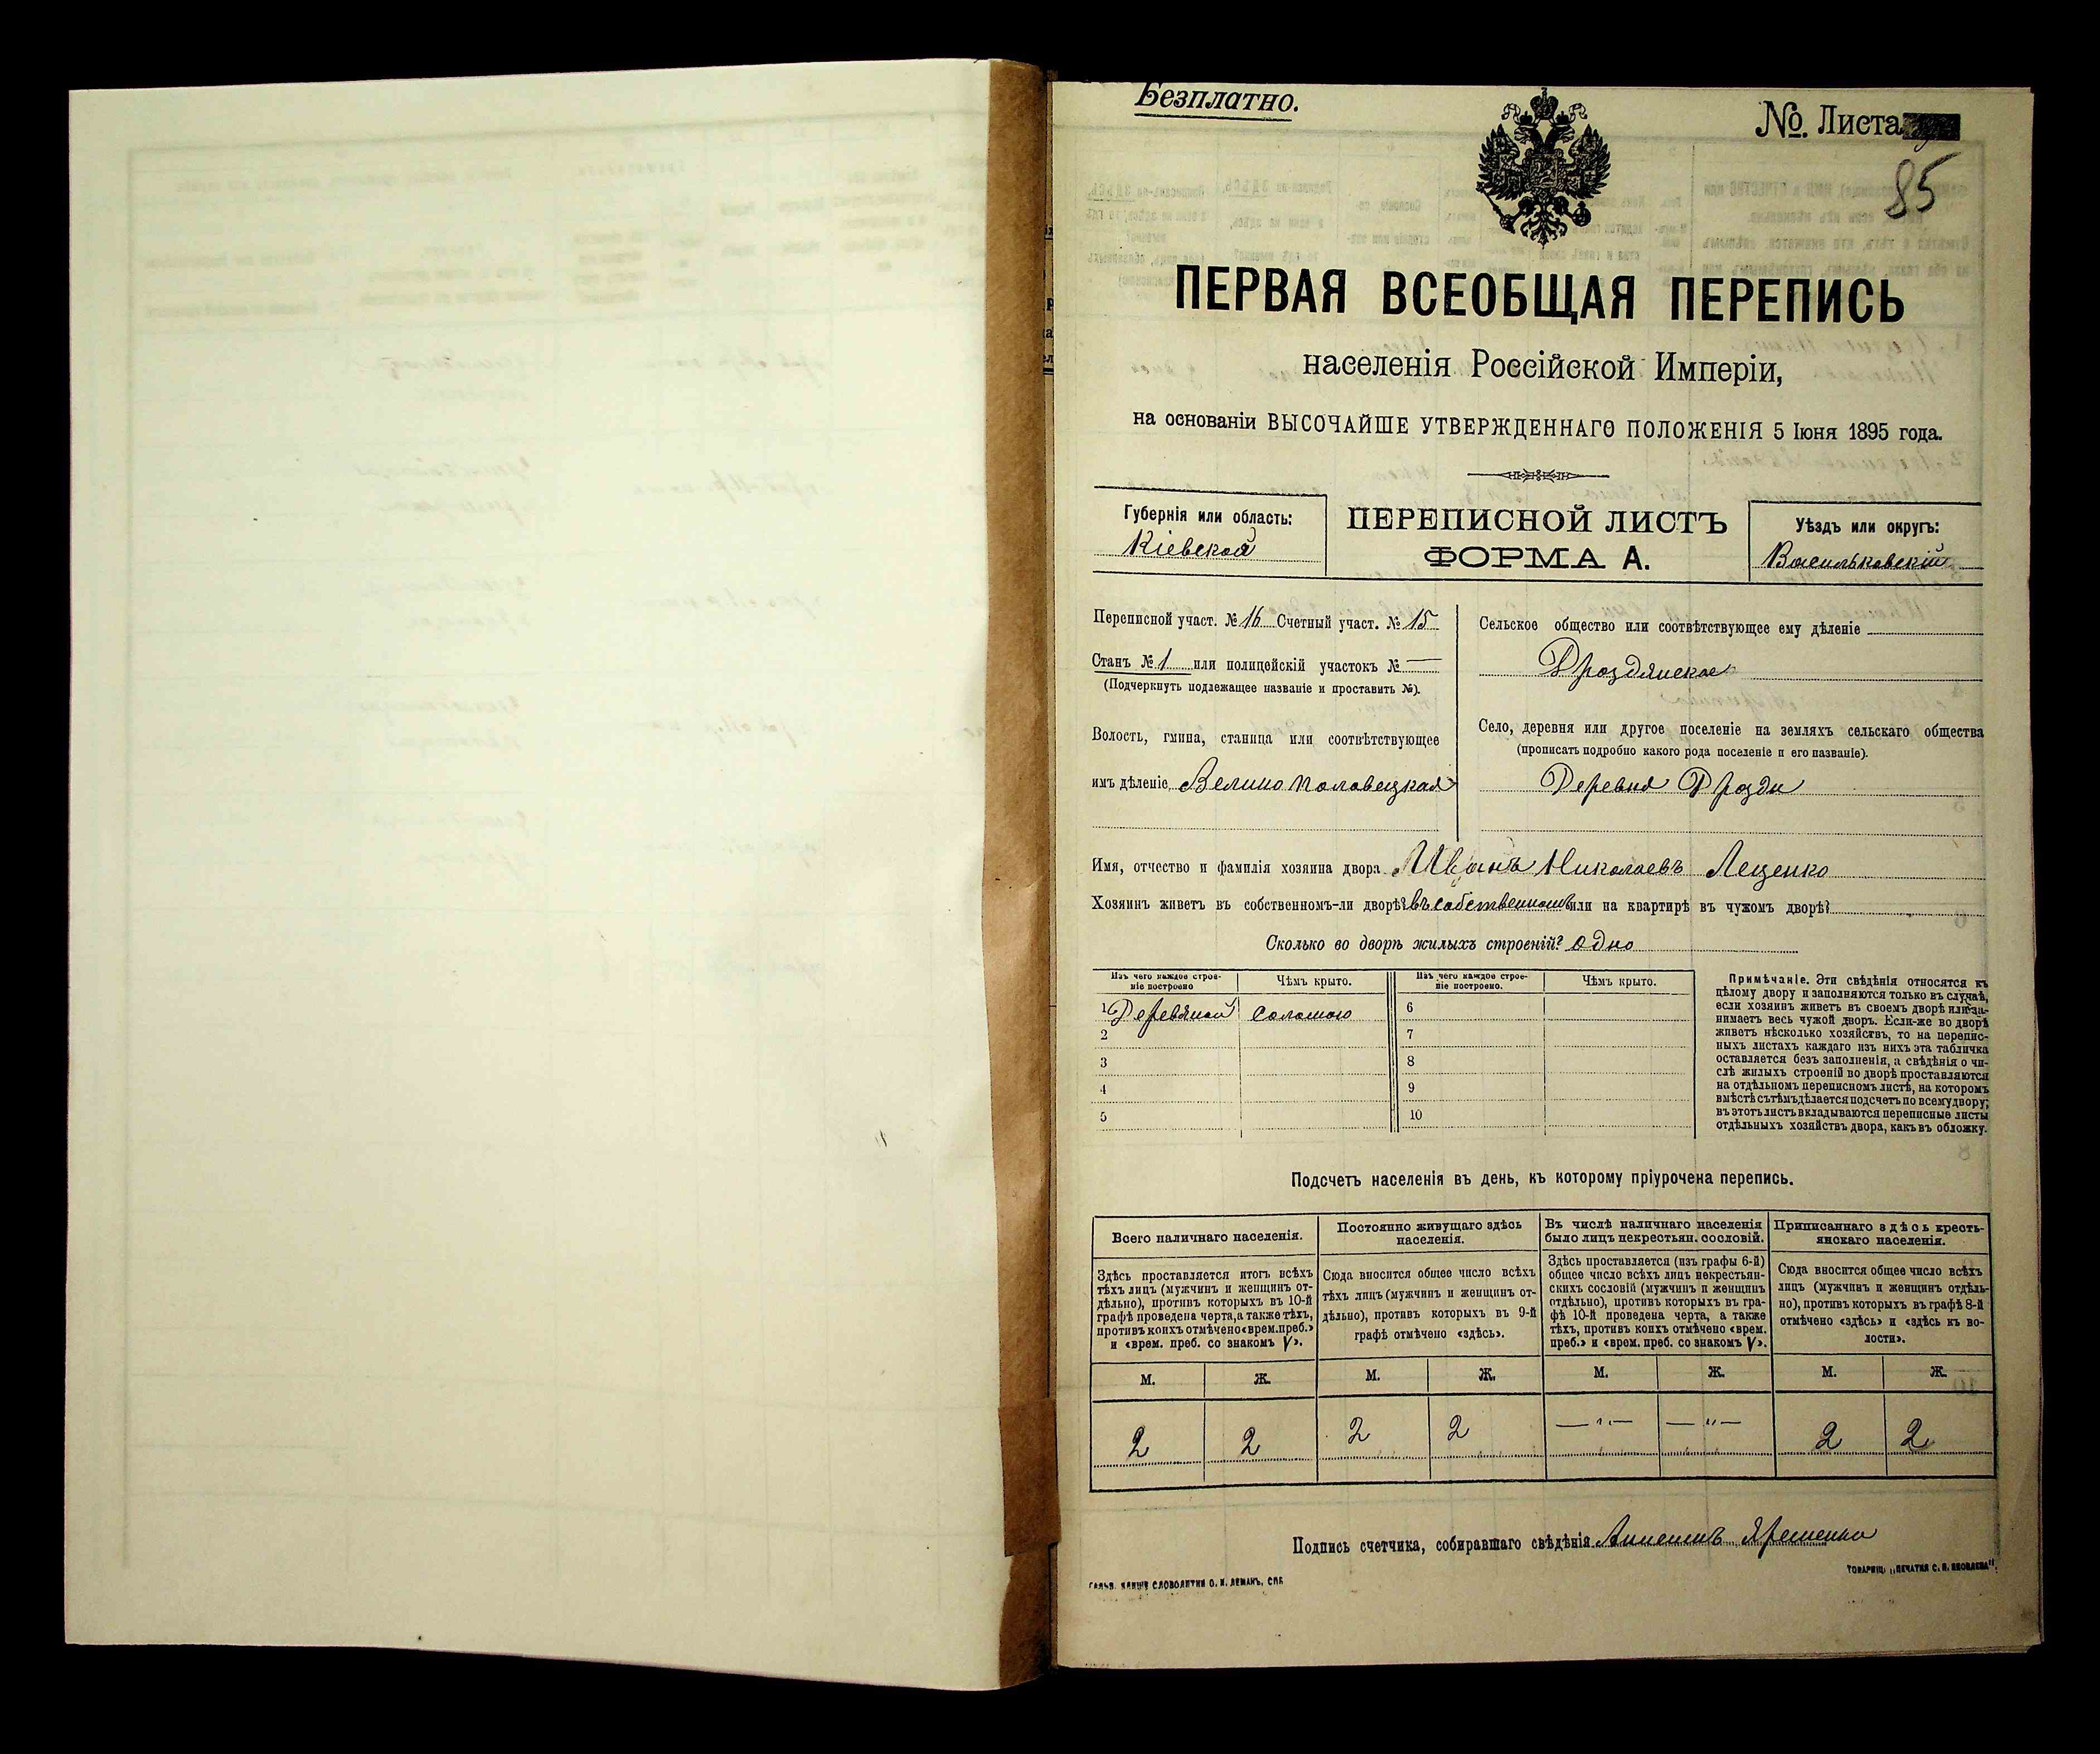 Безплатно.
№. Листа
85
ПЕРВАЯ ВСЕОБЩАЯ ПЕРЕПИСЬ
населенія Россійской Имперіи,
на основаніи ВЫСОЧАЙШЕ УТВЕРЖДЕННАГО ПОЛОЖЕНІЯ 5 Іюня 1895 года.
Губернія или область:
Кіевской
ПЕРЕПИСНОЙ ЛИСТЪ
ФОРМА А.
Уѣздъ или округъ:
Васильковскій
Переписной участ. № 16 Счетный участ. № 15
Станъ № 1 или полицейскій участокъ № —
(Подчеркнуть подлежащее названіе и проставить №).
Волость, гмина, станица или соотвѣтствующее
имъ дѣленіе Велико Половецкая
Сельское общество или соотвѣтствующее ему дѣленіе
Дроздянское
Село, деревня или другое поселеніе на земляхъ сельскаго общества
(прописать подробно какого рода поселеніе и его названіе).
Деревня Дрозди
Имя, отчество и фамилія хозяина двора Иванъ Николаевъ Лещенко
Хозяинъ живетъ въ собственномъ-ли дворѣ? въ собственномъ или на квартирѣ въ чужомъ дворѣ?
Сколько во дворѣ жилыхъ строеній? одно
Изъ чего каждое строе-
ніе построено
Чѣмъ крыто.
Изъ чего каждое строе-
ніе построено.
Чѣмъ крыто.
1 Деревяной Соломою
2
3
4
5
6
7
8
9
10
Примѣчаніе. Эти свѣдѣнія относятся къ
цѣлому двору и заполняются только въ случаѣ,
если хозяинъ живетъ въ своемъ дворѣ или за-
нимаетъ весь чужой дворъ. Если-же во дворѣ
живетъ нѣсколько хозяйствъ, то на перепис-
ныхъ листахъ каждаго изъ нихъ эта табличка
оставляется безъ заполненія, а свѣдѣнія о чи-
слѣ жилыхъ строеній во дворѣ проставляются
на отдѣльномъ переписномъ листѣ, на которомъ
вмѣстѣ съ тѣмъ дѣлается подсчетъ по всему двору;
въ этотъ листъ вкладываются переписные листы
отдѣльныхъ хозяйствъ двора, какъ въ обложку.
Подсчетъ населенія въ день, къ которому пріурочена перепись.
Всего наличнаго населенія.
Здѣсь проставляется итогъ всѣхъ
тѣхъ лицъ (мужчинъ и женщинъ от-
дѣльно), противъ которыхъ въ 10-й
графѣ проведена черта, а также тѣхъ,
противъ коихъ отмѣчено «врем. преб.»
и «врем. преб. со знакомъ V».
М. Ж.
2 2
Постоянно живущаго здѣсь
населенія.
Сюда вносится общее число всѣхъ
тѣхъ лицъ (мужчинъ и женщинъ от-
дѣльно), противъ которыхъ въ 9-й
графѣ отмѣчено «здѣсь».
М. Ж.
2 2
Въ числѣ наличнаго населенія
было лицъ некрестьян. сословій.
Здѣсь проставляется (изъ графы 6-й)
общее число всѣхъ лицъ некрестьян-
скихъ сословій (мужчинъ и женщинъ
отдѣльно), противъ которыхъ въ гра-
фѣ 10-й проведена черта, а также
тѣхъ, противъ коихъ отмѣчено «врем.
преб.» и «врем. преб. со знакомъ V».
М. Ж.
— „ — — „ —
Приписаннаго здѣсь кресть-
янскаго населенія.
Сюда вносится общее число всѣхъ
лицъ (мужчинъ и женщинъ отдѣль-
но), противъ которыхъ въ графѣ 8-й
отмѣчено «здѣсь» и «здѣсь къ во-
лости».
М. Ж.
2 2
Подпись счетчика, собиравшаго свѣдѣнія
СЛОВОЛИТНИ О. И. ЛЕМАНЪ, СПБ
ТОВАРИЩ. „ПЕЧАТНЯ С. П. ЯКОВЛЕВА“